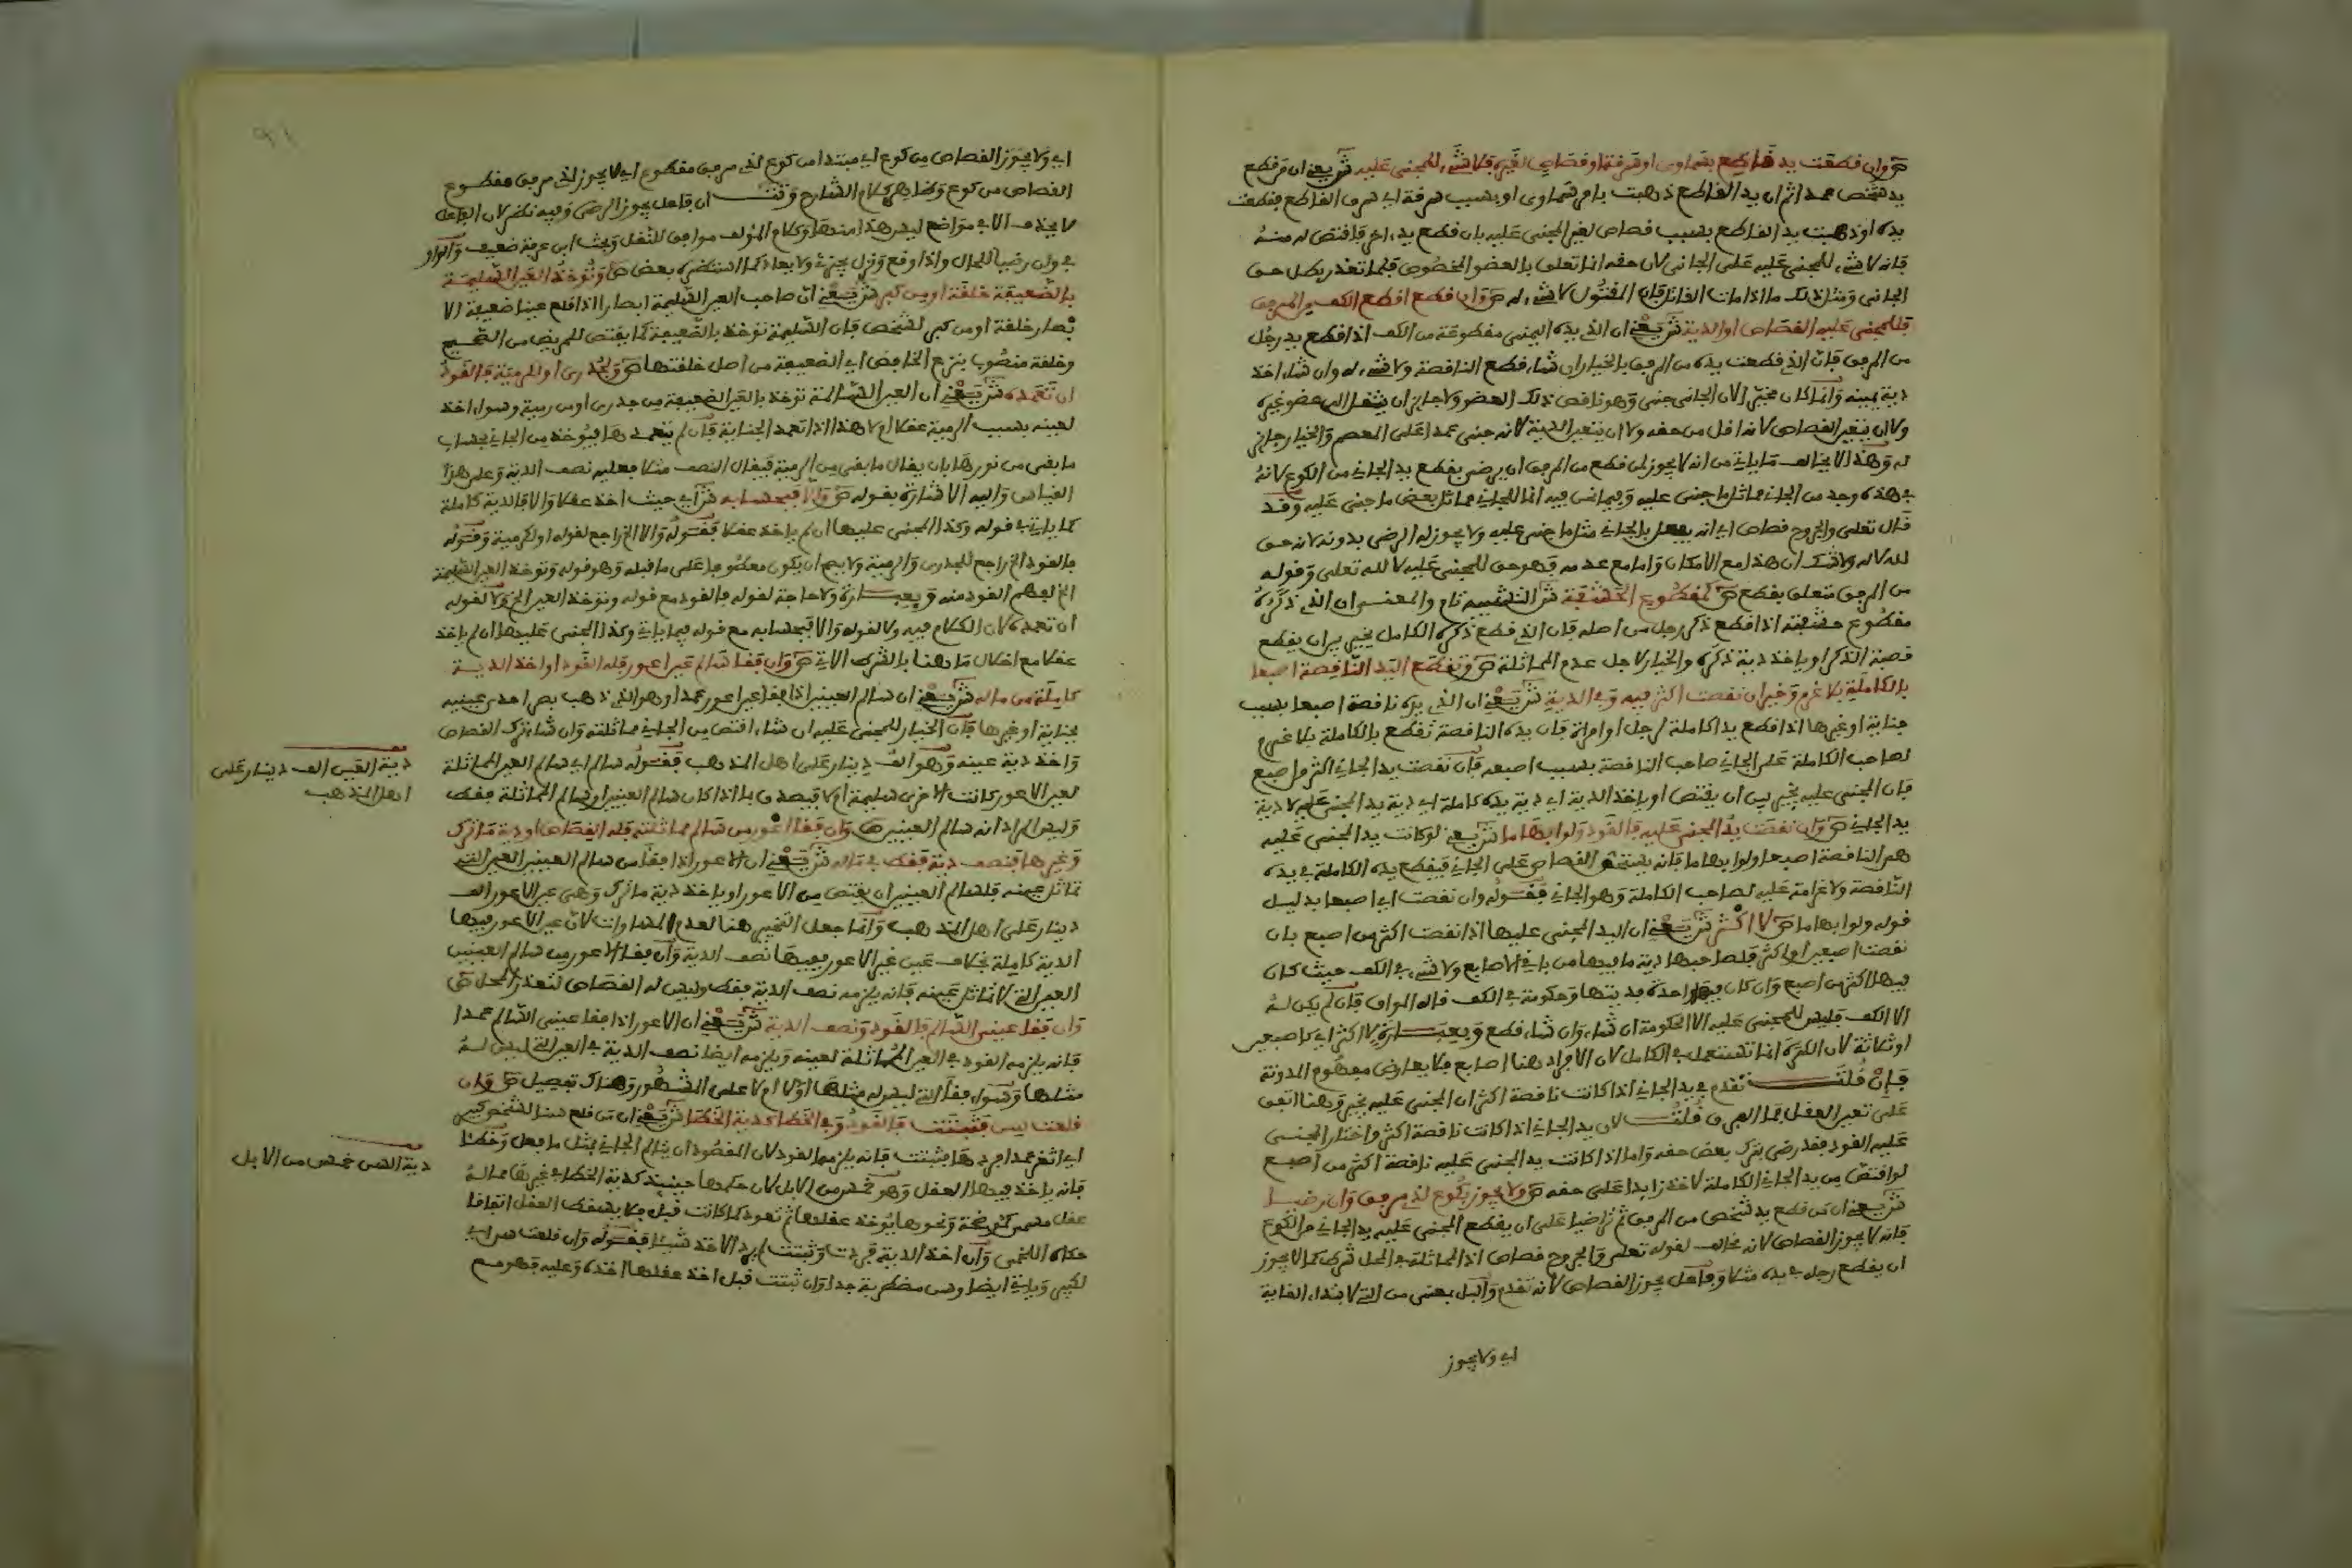 ص وان قطعت يد قاطع بسماوي او سرقة او قصاص لغيره فلا شيء للمجني عليه ش يعني ان من قطع
يد شخص عمدا ثم ان يد القاطع ذهبت بامر سماوي او بسبب سرقة اي سرق القاطع فقطعت
يده او ذهبت يد القاطع بسبب قصاص لغير المجني عليه بان قطع يد اخر فاقتص له منه
فانه لا شيء للمجني عليه على الجاني لان حقه انما تعلق بالعضو المخصوص فلما تعذر بطل حق
الجاني ومثل ذلك ما اذا مات القاتل فان المقتول لا شيء له ص وان قطع اقطع الكف من المرفق
فللمجني عليه القصاص او الدية ش يعني ان الذي يده اليمنى مقطوعة من الكف اذا قطع يد رجل
من المرفق فان الذي قطعت يده من المرفق بالخيار ان شاء قطع الناقصة ولا شيء له وان شاء اخذ
دية يمينه وانما كان مخيرا لان الجاني جنى وهو ناقص ذلك العضو ولا جائز ان ينتقل الى عضو غيره
ولا ان يتعين القصاص لانه اقل من حقه ولا ان تتعين الدية لانه جنى عمدا على المعصم والخيار جائز
له وهذا لا يخالف ما ياتي من انه لا يجوز لمن قطع من المرفق ان يرضى بقطع يد الجاني من الكوع لانه
في هذه وجد من الجاني مماثل ما جنى عليه وفيما نحن فيه انما للجاني مماثل بعض ما جنى عليه وقد
قال تعالى والجروح قصاص اي انه يفعل بالجاني مثل ما جنى عليه ولا يجوز له الرضى بدونه لانه حق
لله لا له ولا شك ان هذا مع الامكان واما مع عدمه فهو حق للمجني عليه لا لله تعالى وقوله
من المرفق متعلق بقطع ص كمقطوع الحشفة ش التشبيه تام والمعنى ان الذي ذكره
مقطوع حشفته اذا قطع ذكر رجل من اصله فان الذي قطع ذكره الكامل يخير بين ان يقطع
قصبة الذكر او ياخذ دية ذكره والخيار لاجل عدم المماثلة ص وتقطع اليد الناقصة اصبعا
بالكاملة بلا غرم وخير ان نقصت اكثر فيه وفي الدية ش يعني ان الذي يده ناقصة اصبعا بسبب
جناية او غيرها اذا قطع يدا كاملة لرجل او امراة فان يده الناقصة تقطع بالكاملة بلا غرم
لصاحب الكاملة على الجاني صاحب الناقصة بسبب اصبعه فان نقصت يد الجاني اكثر من اصبع
فان المجني عليه يخير بين ان يقتص او ياخذ الدية اي دية يده كاملة اي دية يد المجني عليه لا دية
يد الجاني ص وان نقصت يد المجني عليه فالقود ولو ابهاما ش يعني لو كانت يد المجني عليه
هي الناقصة اصبعا ولو ابهاما فانه يستحق القصاص على الجاني فيقطع يده الكاملة في يده
الناقصة ولا غرامة عليه لصاحب الكاملة وهو الجاني فقوله وان نقصت اي اصبعا بدليل
قوله ولو ابهاما ص لا اكثر ش يعني ان اليد المجني عليها اذا نقصت اكثر من اصبع بان
نقصت اصبعين او اكثر فلصاحبها دية ما فيها من باقي الاصابع ولا شيء في الكف حيث كان
فيها اكثر من اصبع وان كان فيها واحدة فديتها وحكومة في الكف قاله المواق فان لم يكن له
الا الكف فليس للمجني عليه الا الحكومة ان شاء وان شاء قطع وبعبارة لا اكثر اي كاصبعين
او ثلاثة لان الكثرة انما تستعمل في الكامل لان الافراد هنا اصابع فلا يعارض مفهوم المدونة
فان قلت تقدم في يد الجاني اذا كانت ناقصة اكثر ان المجني عليه يخير وهنا اتفق
على تعين العقل فما الفرق قلت لان يد الجاني اذا كانت ناقصة اكثر واختار المجني
عليه القود فقد رضي بترك بعض حقه واما اذا كانت يد المجني عليه ناقصة اكثر من اصبع
لو اقتص من يد الجاني الكاملة لاخذ زايدا على حقه ص ولا يجوز بكوع لذي مرفق وان رضيا
ش يعني ان من قطع يد شخص من المرفق ثم تراضيا على ان يقطع المجني عليه يد الجاني من الكوع
فانه لا يجوز القصاص لانه مخالف لقوله تعلى والجروح قصاص اذ المماثلة في المحل شرط كما لا يجوز
ان يقطع رجل في يده مثلا وفاعل يجوز القصاص لانه تقدم والباء بمعنى من التي لابتداء الغاية
اي ولا يجوز
اي ولا يجوز القصاص من كوع اي مبتدا من كوع لذي مرفق مقطوع اي لا يجوز لذي مرفق مقطوع
القصاص من كوع وظاهر كلام الشارح وتت ان فاعل يجوز الرضى وفيه نظر لان الفاعل
لا يحذف الا في مواضع ليس هذا منها وكلام المؤلف موافق للنقل وبحث ابن عرفة ضعيف والواو
في وان رضيا للحال واذا وقع ونزل يجزئ ولا يعاد كما استظهره بعض ص وتؤخذ العين السليمة
بالضعيفة خلقة او من كبر ش يعني ان صاحب العين السليمة ابصارا اذا قلع عينا ضعيفة الا
بصار خلقة او من كبر لشخص فان السليمة تؤخذ بالضعيفة كما يقتص للمريض من الصحيح
وخلقة منصوب بنزع الخافض اي الضعيفة من اصل خلقتها ص ولجدري او لكرمية فالقود
ان تعمده ش يعني ان العين السالمة تؤخذ بالعين الضعيفة من جدري او من رمية وسواء اخذ
لعينه بسبب الرمية عقلا ام لا هذا اذا تعمد الجناية فان لم يتعمدها فيؤخذ من الجاني بحساب
ما بقي من نورها بان يقال ما بقي من الرمية فيقال النصف مثلا فعليه نصف الدية وعلى هذا
القياس واليه الاشارة بقوله ص والا فبحسابه ش اي حيث اخذ عقلا والا فالدية كاملة
كما ياتي في قوله وكذا المجني عليها ان لم ياخذ عقلا فقوله والا الخ راجع لقوله او لكرمية وقوله
فالقود الخ راجع للجدري والرمية ولا يصح ان يكون معطوفا على ما قبله وهو قوله وتوخذ العين السليمة
الخ لفهم القود منه وبعبارة ولا حاجة لقوله فالقود مع قوله وتوخذ العين الخ ولا لقوله
ان تعمده لان الكلام فيه ولا لقوله والا فبحسابه مع قوله فيما ياتي وكذا المجني عليها ان لم ياخذ
عقلا مع اخلال ما هنا بالشرط الاتي ص وان فقا سالم عين اعور فله القود او اخذ الدية
كاملة من ماله ش يعني ان سالم العينين اذا فقا عين اعور عمدا وهو الذي ذهب بصر احدى عينيه
بجناية او غيرها فان الخيار للمجني عليه ان شاء اقتص من الجاني مماثلته وان شاء ترك القصاص
واخذ دية عينه وهو الف دينار على اهل الذهب فقوله سالم اي سالم العين المماثلة
لعين الاعور كانت الاخرى سليمة ام لا فيصدق بما اذا كان سالم العينين او سالم المماثلة فقط
وليس المراد انه سالم العينين ص وان فقا اعور من سالم مماثلته فله القصاص او دية ما ترك
وغيرها فنصف دية فقط في ماله ش يعني ان الاعور اذا فقا من سالم العينين العين التي
تماثل عينه فلسالم العينين ان يقتص من الاعور او ياخذ دية ما ترك وهي عين الاعور الف
دينار على اهل الذهب وانما جعل التخيير هنا لعدم المساواة لان عين الاعور فيها
الدية كاملة بخلاف عين غير الاعور ففيها نصف الدية وان فقا الاعور من سالم العينين
العين التي لا تماثل عينه فانه يلزمه نصف الدية فقط وليس له القصاص لتعذر المحل ص
وان فقا عيني السالم فالقود ونصف الدية ش يعني ان الاعور اذا فقا عيني السالم عمدا
فانه يلزمه القود في العين المماثلة لعينه ويلزمه ايضا نصف الدية في العين التي ليس له
مثلها وسواء فقا التي ليس له مثلها اولا ام لا على المشهور وهناك تفصيل ص وان
قلعت سن فثبتت فالقود وفي الخطا كدية الخطا ش يعني ان من قلع سنا لشخص كبير
اي اثغر عمدا فردها فثبتت فانه يلزمه القود لان المقصود ان يتالم الجاني بمثل ما فعل وخطا
فانه ياخذ فيها العقل وهو خمس من الابل لان حكمها حينئذ كدية الخطا في غيرها مما له
عقل مسمى كموضحة ونحوها يوخذ عقلها ثم تعود كما كانت قبل فلا يسقط العقل اتفاقا
حكاه اللخمي وان اخذ الدية فردت وثبتت لم يرد الاخذ شيئا فقوله وان قلعت سن اي
لكبير وياتي ايضا وسن مضطربة جدا وان ثبتت قبل اخذ عقلها اخذه وعليه فهو مع
دية العين الف دينار على
اهل الذهب
دية السن خمس من الابل